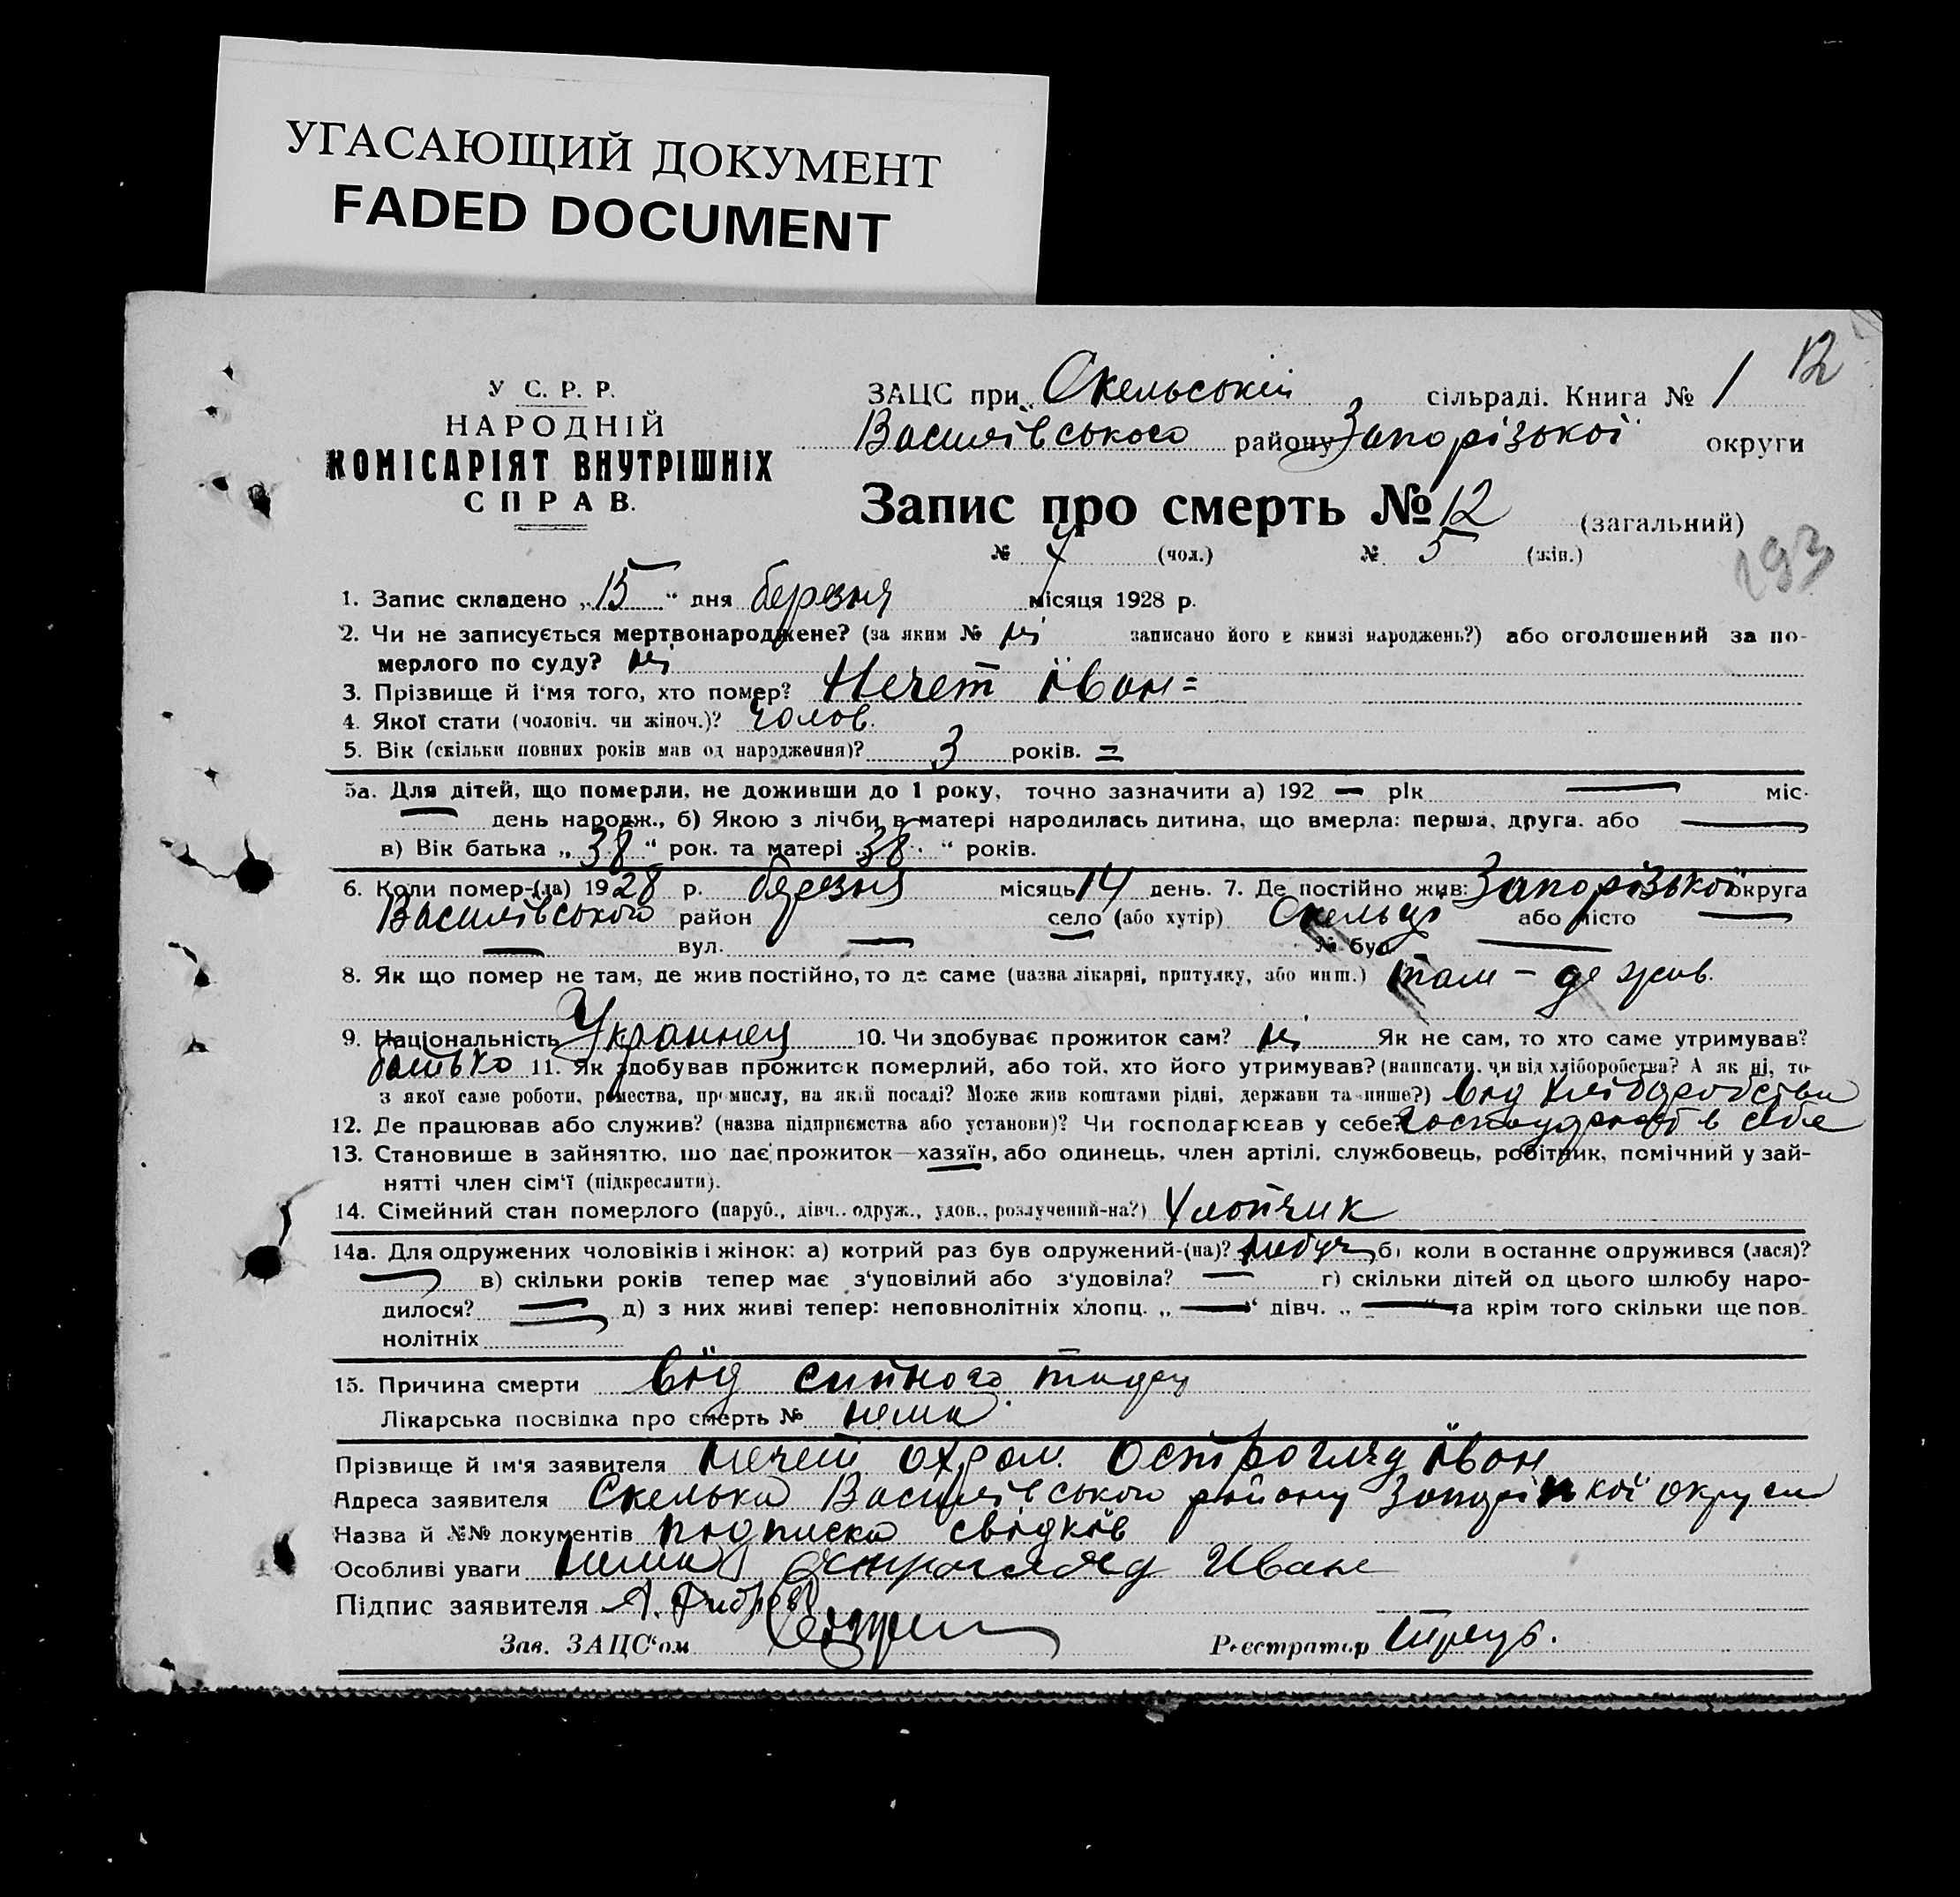 УГАСАЮЩИЙ ДОКУМЕНТ
FADED DOCUMENT
12
У С. Р. Р.
НАРОДНІЙ
КОМІСАРІЯТ ВНУТРІШНІХ
СПРАВ.
ЗАЦС при Скельській сільраді. Книга № 1
Василівського району Запорізької округи
Запис про смерть № 12 (загальний)
№ 7 (чол.) № 5 (жін.)
193
1. Запис складено „15" дня березня місяця 1928 р.
2. Чи не записується мертвонароджене? (за яким № ні записано його в книзі народжень?) або оголошений за по-
мерлого по суду? ні
3. Прізвище й ім'я того, хто помер? Нечет Іван =
4. Якої стати (чоловіч. чи жіноч.)? Чолов.
5. Вік (скільки повних років мав од народження)? 3 років. =
5а. Для дітей, що померли, не доживши до 1 року, точно зазначити а) 192 — рік — міс.
— день народж., б) Якою з лічби в матері народилась дитина, що вмерла: перша, друга. або —
в) Вік батька „38" рок. та матері „38" років.
6. Коли помер-(ла) 1928 р. березня місяць 14 день. 7. Де постійно жив: Запорізької округа
Василівського район село (або хутір) або місто —
— вул. — № буд. —
8. Як що помер не там, де жив постійно, то де саме (назва лікарні, притулку, або инш.) там - де жив.
9. Національність Украинец 10. Чи здобуває прожиток сам? ні Як не сам, то хто саме утримував?
батько 11. Як здобував прожиток померлий, або той, хто його утримував? (написати, чи від хліборобства? А як ні, то
з якої саме роботи, ремества, промислу, на якій посаді? Може жив коштами рідні, держави та инше?) від хліборобства
12. Де працював або служив? (назва підприємства або установи)? Чи господарював у себе? в себе
13. Становище в зайняттю, що дає прожиток—хазяїн, або одинець, член артілі, службовець, робітник, помічний у зай-
нятті член сім'ї (підкреслити).
14. Сімейний стан померлого (паруб., дівч., одруж., удов., розлучений-на?) Хлопчик
14а. Для одружених чоловіків і жінок: а) котрий раз був одружений-(на)? небув б) коли в останнє одружився (лася)?
— в) скільки років тепер має з'уповілий або з'удовіла? — г) скільки дітей од цього шлюбу наро-
дилося? — д) з них живі тепер: неповнолітніх хлопц. „—" дівч. „—" та крім того скільки ще пов-
нолітніх
15. Причина смерти від сипного тифу
Лікарська посвідка про смерть № нема.
Прізвище й ім'я заявителя Нечет Остроглад Іван
Адреса заявителя Скелька Василівського району округи
Назва й №№ документів подписка свідків
Особливі уваги нема Остроглад Иван
Підпис заявителя
Зав. ЗАЦС'ом Реєстратор